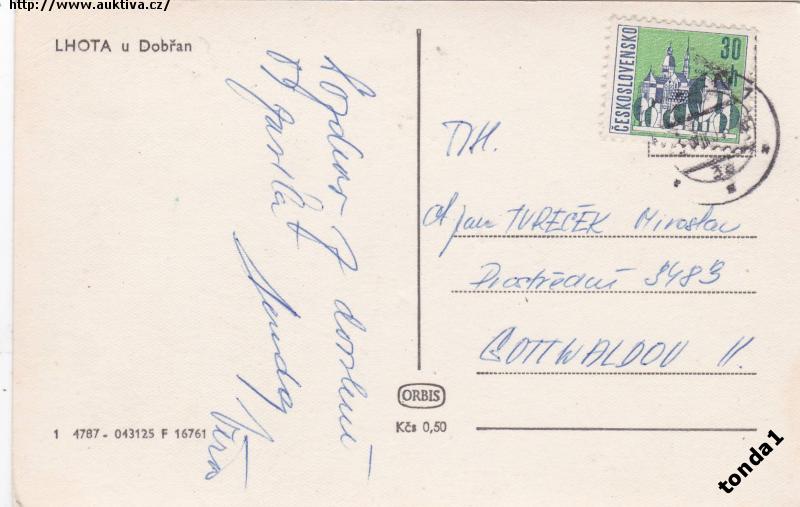 http://www.auktiva.cz/
LHOTA u Dobřan
ČESKOSLOVENSKO
30
h
Pozdrav z dovolené
Věra
TUREČEK Miroslav
Prostřední 3483
GOTTWALDOV II.
ORBIS
Kčs 0,50
1 4787 - 043125 F 16761
tonda1